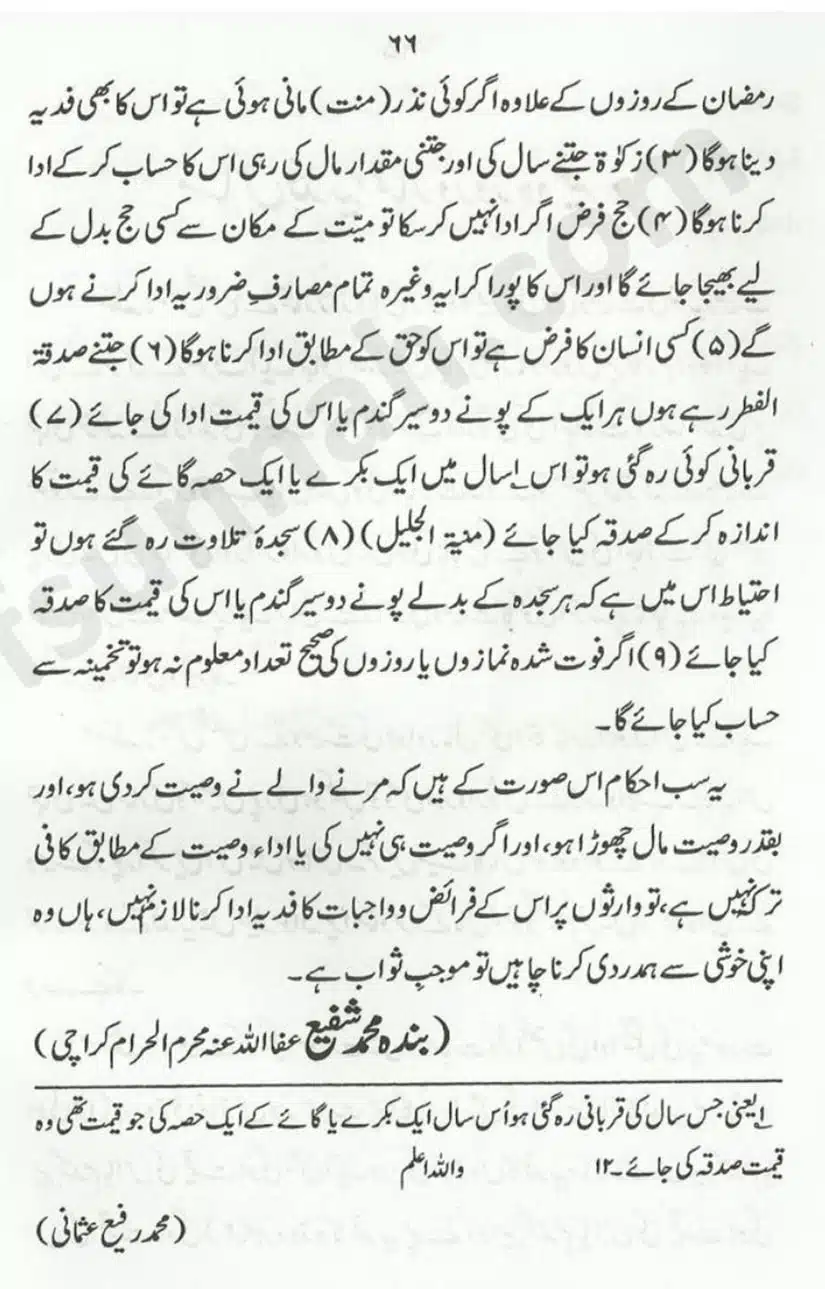 ۶۶
رمضان کے روزوں کے علاوہ اگر کوئی نذر (منت) مانی ہوئی ہے تو اس کا بھی فدیہ
دینا ہوگا (۳) زکوٰۃ جتنے سال کی اور جتنی مقدار مال کی رہی اس کا حساب کر کے ادا
کرنا ہوگا (۴) حج فرض اگر ادا نہیں کر سکا تو میّت کے مکان سے کسی حج بدل کے
لیے بھیجا جائے گا اور اس کا پورا کرایہ وغیرہ تمام مصارفِ ضروریہ ادا کرنے ہوں
گے (۵) کسی انسان کا قرض ہے تو اس کو حق کے مطابق ادا کرنا ہوگا (۶) جتنے صدقۃ
الفطر رہے ہوں ہر ایک کے پونے دو سیر گندم یا اس کی قیمت ادا کی جائے (۷)
قربانی کوئی رہ گئی ہو تو اس ۱؎ سال میں ایک بکرے یا ایک حصہ گائے کی قیمت کا
اندازہ کر کے صدقہ کیا جائے (منیۃ الجلیل) (۸) سجدۂ تلاوت رہ گئے ہوں تو
احتیاط اس میں ہے کہ ہر سجدہ کے بدلے پونے دو سیر گندم یا اس کی قیمت کا صدقہ
کیا جائے (۹) اگر فوت شدہ نمازوں یا روزوں کی صحیح تعداد معلوم نہ ہو تو تخمینہ سے
حساب کیا جائے گا۔
یہ سب احکام اس صورت کے ہیں کہ مرنے والے نے وصیت کر دی ہو، اور
بقدر وصیت مال چھوڑا ہو، اور اگر وصیت ہی نہیں کی یا اداء وصیت کے مطابق کافی
ترکہ نہیں ہے، تو وارثوں پر اس کے فرائض و واجبات کا فدیہ ادا کرنا لازم نہیں، ہاں وہ
اپنی خوشی سے ہمدردی کرنا چاہیں تو موجبِ ثواب ہے۔
(بندہ محمد شفیع عفا اللہ عنہ محرم الحرام کراچی)
۱؎ یعنی جس سال کی قربانی رہ گئی ہو اُس سال ایک بکرے یا گائے کے ایک حصہ کی جو قیمت تھی وہ
قیمت صدقہ کی جائے۔۱۲ واللہ اعلم
(محمد رفیع عثمانی)